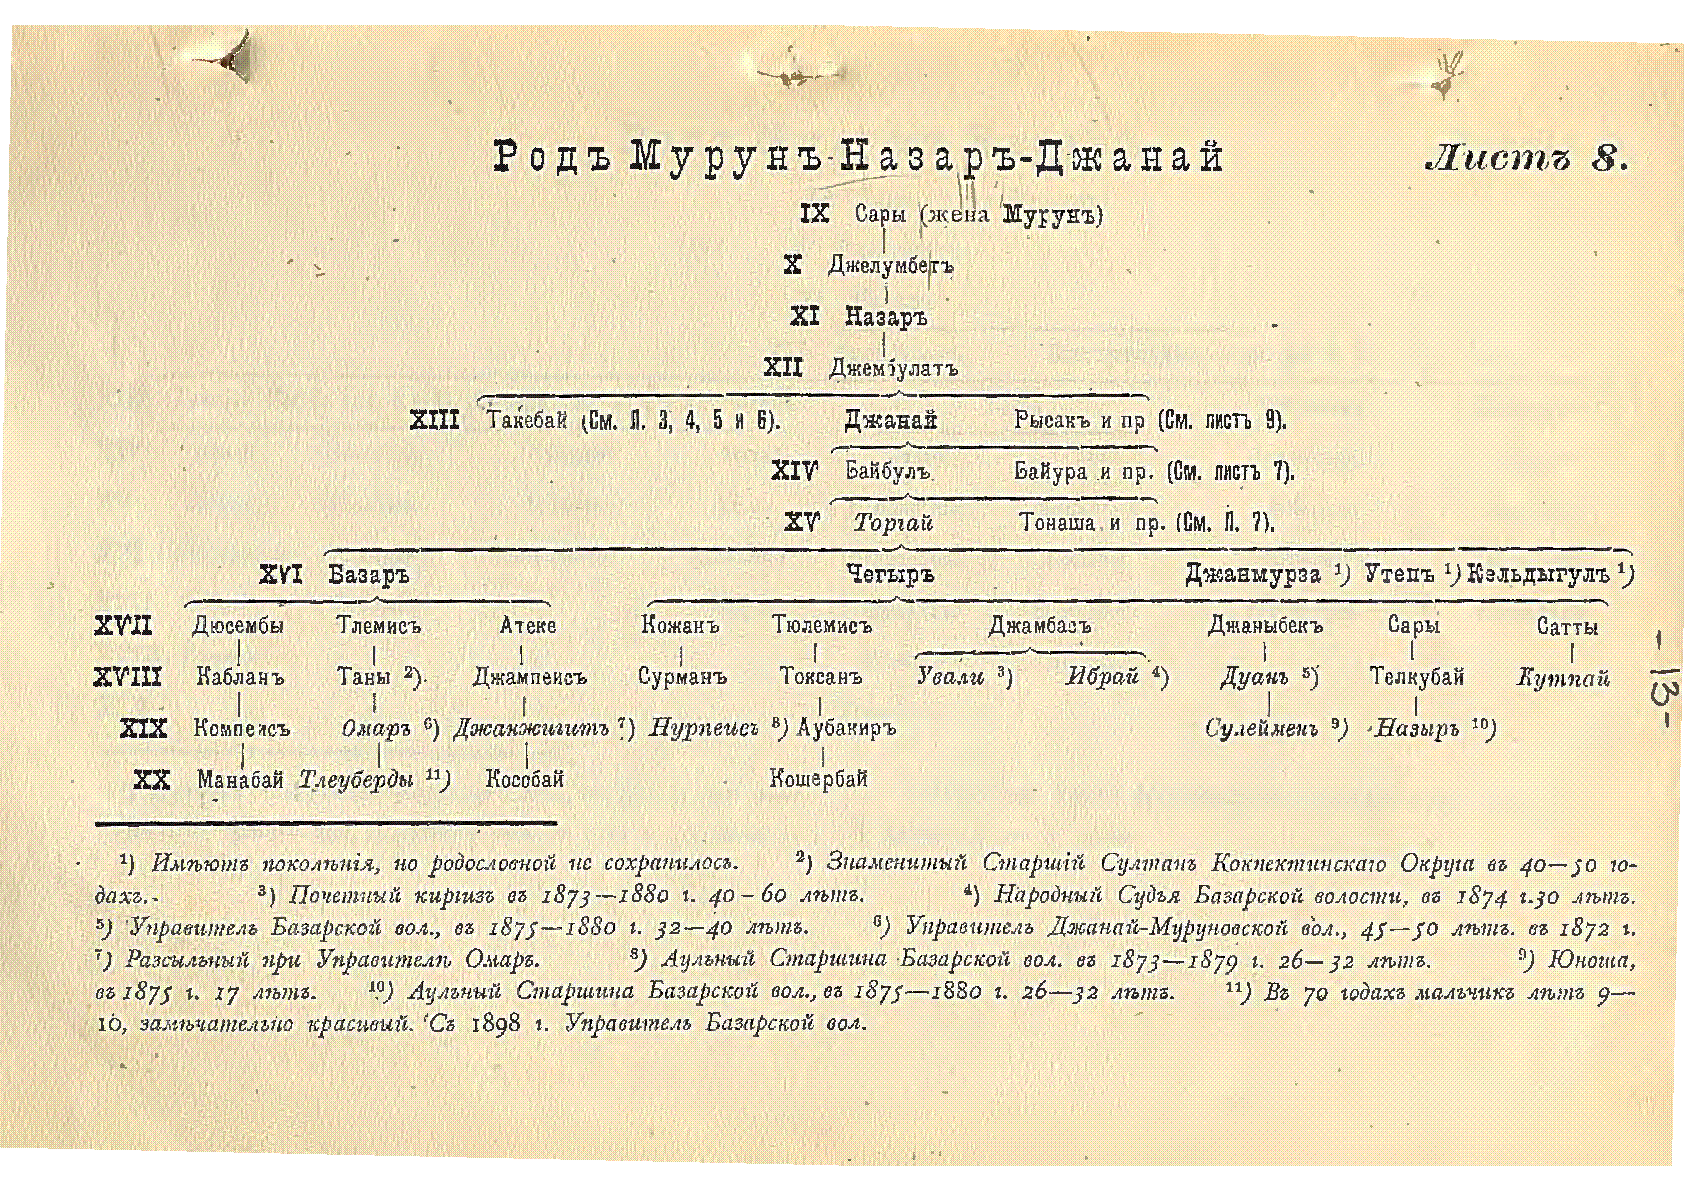 Родъ Мурунъ-Назаръ-Джанай Листъ 8.
IX Сары (жена Мурунъ)
X Джелумбетъ
XI Назаръ
XII Джембулатъ
XIII Такебай (См. Л. 3, 4, 5 и 6). Джанай Рысакъ и пр (См. листъ 9).
XIV Байбулъ Байура и пр. (См. листъ 7).
XV Торгай Тонаша и пр. (См. Л. 7).
XVI Базаръ Чегыръ Джанмурза ¹) Утепъ ¹) Кельдыгулъ ¹)
XVII Дюсембы Тлемисъ Атеке Кожанъ Тюлемисъ Джамбазъ Джаныбекъ Сары Сатты
XVIII Кабланъ Таны ²). Джампеисъ Сурманъ ТоксанъУвали ³) Ибрай ⁴) Дуанъ ⁵) Телкубай Кутпай
XIX Компеисъ Омаръ ⁶) Джанжигитъ ⁷) Нурпеисъ ⁸) Аубакиръ Сулейменъ ⁹) Назыръ ¹⁰)
XX Манабай Тлеуберды ¹¹) Кособай Кошербай
¹) Имѣютъ поколѣнія, но родословной не сохранилось. ²) Знаменитый Старшій Султанъ Кокпектинскаго Округа въ 40—50 го-
дахъ. ³) Почетный киргизъ въ 1873—1880 г. 40—60 лѣтъ. ⁴) Народный Судья Базарской волости, въ 1874 г. 30 лѣтъ.
⁵) Управитель Базарской вол., въ 1875—1880 г. 32—40 лѣтъ. ⁶) Управитель Джанай-Муруновской вол., 45—50 лѣтъ. въ 1872 г.
⁷) Разсыльный при Управителѣ Омарѣ. ⁸) Аульный Старшина Базарской вол. въ 1873—1879 г. 26—32 лѣтъ. ⁹) Юноша,
въ 1875 г. 17 лѣтъ. ¹⁰) Аульный Старшина Базарской вол., въ 1875—1880 г. 26—32 лѣтъ. ¹¹) Въ 70 годахъ мальчикъ лѣтъ 9—
10, замѣчательно красивый. Съ 1898 г. Управитель Базарской вол.
- 13 -